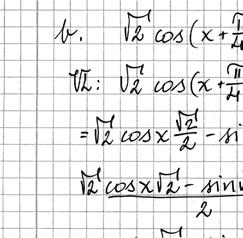 b. √2 cos(x + π/4
VL: √2 cos(x + π/4
= √2 cos x √2/2 - si
√2 (cos x √2 - sin)/2